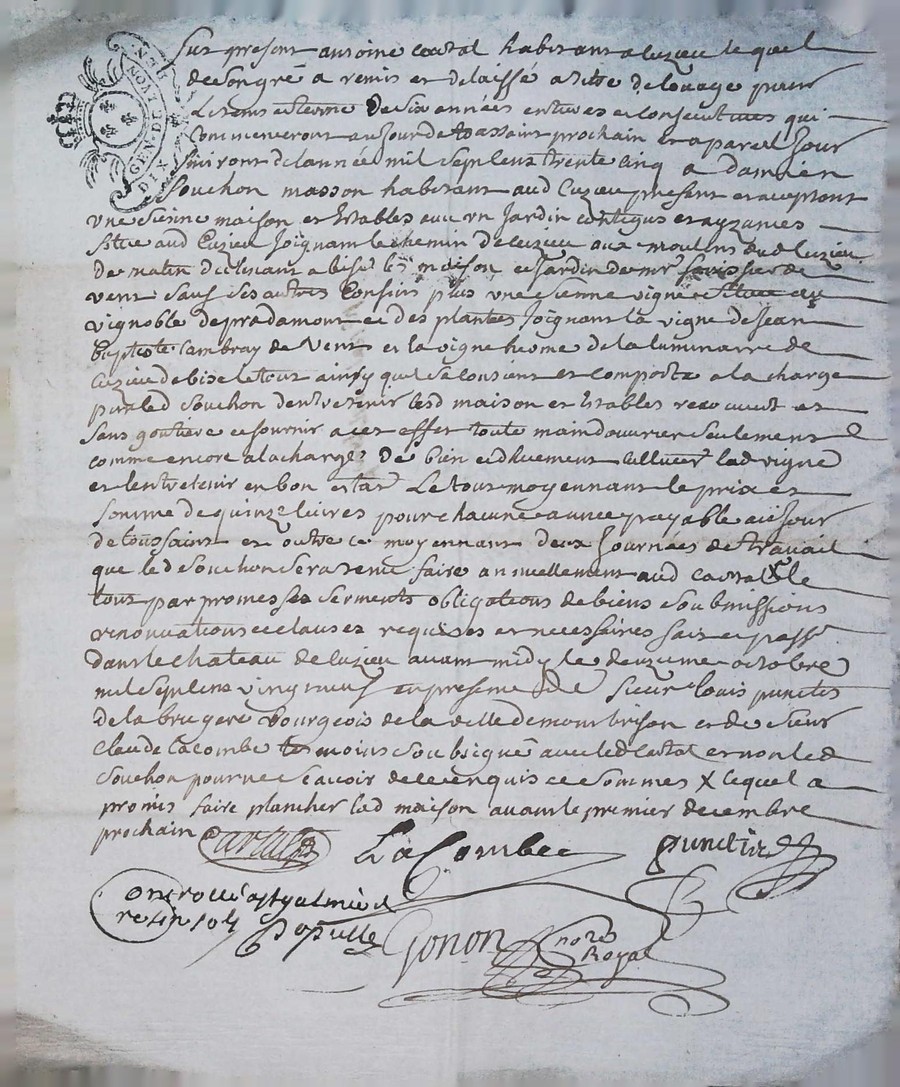 GEN. DE LYON
DIX DEN
Fut present antoine cartal habitant a luzieu lequel
de son gré a remis et delaissé a titre de louage pour
le tems et terme de six années entieres et consecutives qui
commenceront au jour de toussaint prochain et a pareil jour
finiront de lannée mil sept cens trente cinq a damien
souchon masson habitant aud luzieu present et aceptant
une sienne maison et estables avec un jardin contigus et ayzances
situé aud luzieu joignant le chemin de luzieu aux moulins dud luzieu
de matin declinant a bise les maison et jardin de mr de
vent sauf ses autres confins plus une sienne vigne située au
vignoble de pradamour et des plantées joignant la vigne de jean
baptiste cambray de vent et la vigne herme de la luminaire de
luzieu de bise le tout ainsy quil se consiste et comporte a la charge
par led souchon dentretenir lesd maison et estables recouvert et
sans goutiere et fournir a cet effet toute main douvrier seulement
comme encore a la charge de bien et dhuement cultiver lad vigne
et lentretenir en bon estat Le tout moyennant le prix et
somme de quinze livres pour chacune année payable au jour
de toussaint et outre ce moyennant deux journées de travail
que led souchon sera tenu faire annuellement aud cartal x le
tout par promesses serments obligations de biens soubmissions
renonciations et clauses requises et necessaires fait et passé
dans le chateau de luzieu avant midy le deuzieme octobre
mil sept cens vingt neuf en presence de sieur louis punctis
de la bruyere bourgeois de la ville de montbrison et de sieur
claude lacombe temoins soubsignés avec led cartal et non led
souchon pour ne scavoir de ce enquis et sommés x lequel a
promis faire plancher lad maison avant le premier decembre
prochain
Cartal LaCombe punctis
Controllé a st galmier
re Populle Gonon nore
Royal